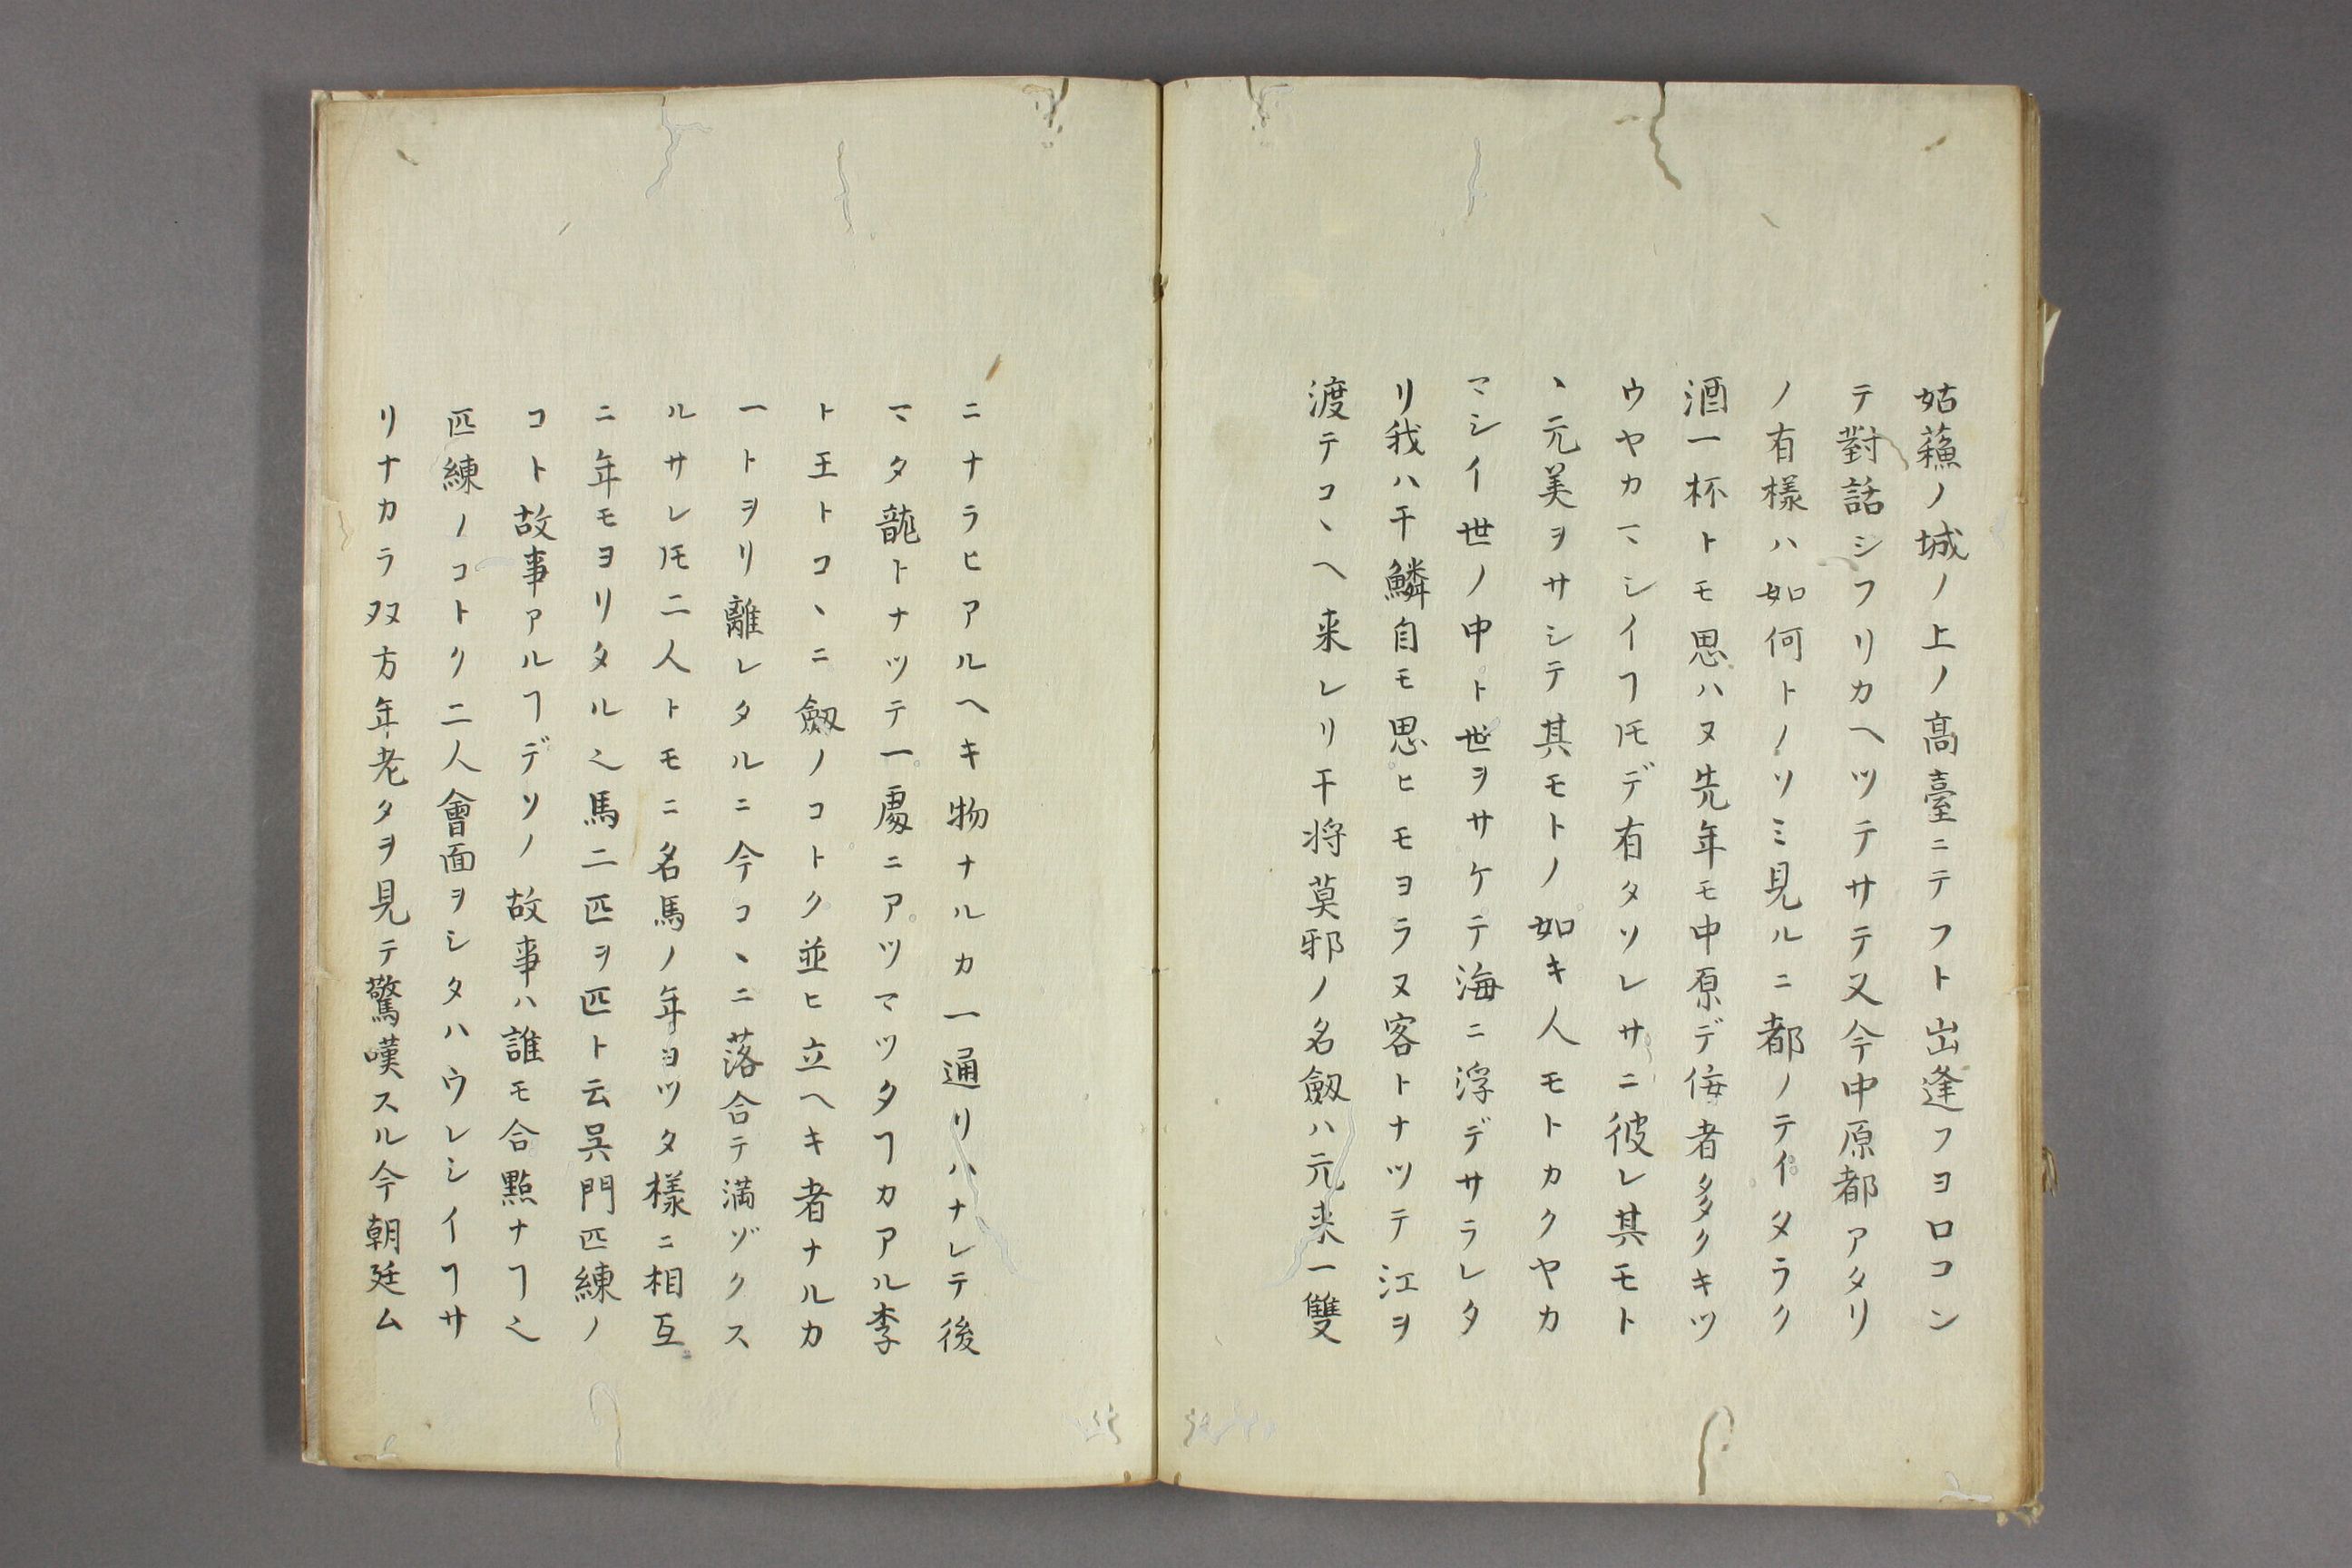 姑蘓ノ城ノ上ノ髙臺ニテフト出逢フヨロコン
テ對話シフリカヘツテサテ又今中原都アタリ
ノ有様ハ如何トノソミ見ルニ都ノテイタラク
酒一杯トモ思ハヌ先年モ中原デ侮者多クキツ
ウヤカマシイヿ𪜈デ有タソレサニ彼レ其モト
ヽ元美ヲサシテ其モトノ如キ人モトカクヤカ
マシイ世ノ中ト世ヲサケテ海ニ浮デサラレタ
リ我ハ干鱗自モ思ヒモヨラヌ客トナツテ江ヲ
渡テコヽヘ来レリ干将莫邪ノ名劔ハ元来一雙
ニナラヒアルヘキ物ナルカ一通リハナレテ後
マタ龍トナツテ一處ニアツマツタヿカアル李
ト王トコヽニ劔ノコトク並ヒ立ヘキ者ナルカ
一トヲリ離レタルニ今コヽニ落合テ満ゾクス
ルサレ𪜈二人トモニ名馬ノ年ヨツタ様ニ相互
ニ年モヨリタル之馬二匹ヲ匹ト云呉門匹練ノ
コト故事アルヿデソノ故事ハ誰モ合點ナヿ之
匹練ノコトク二人會面ヲシタハウレシイヿサ
リナカラ双方年老タヲ見テ驚嘆スル今朝廷ム